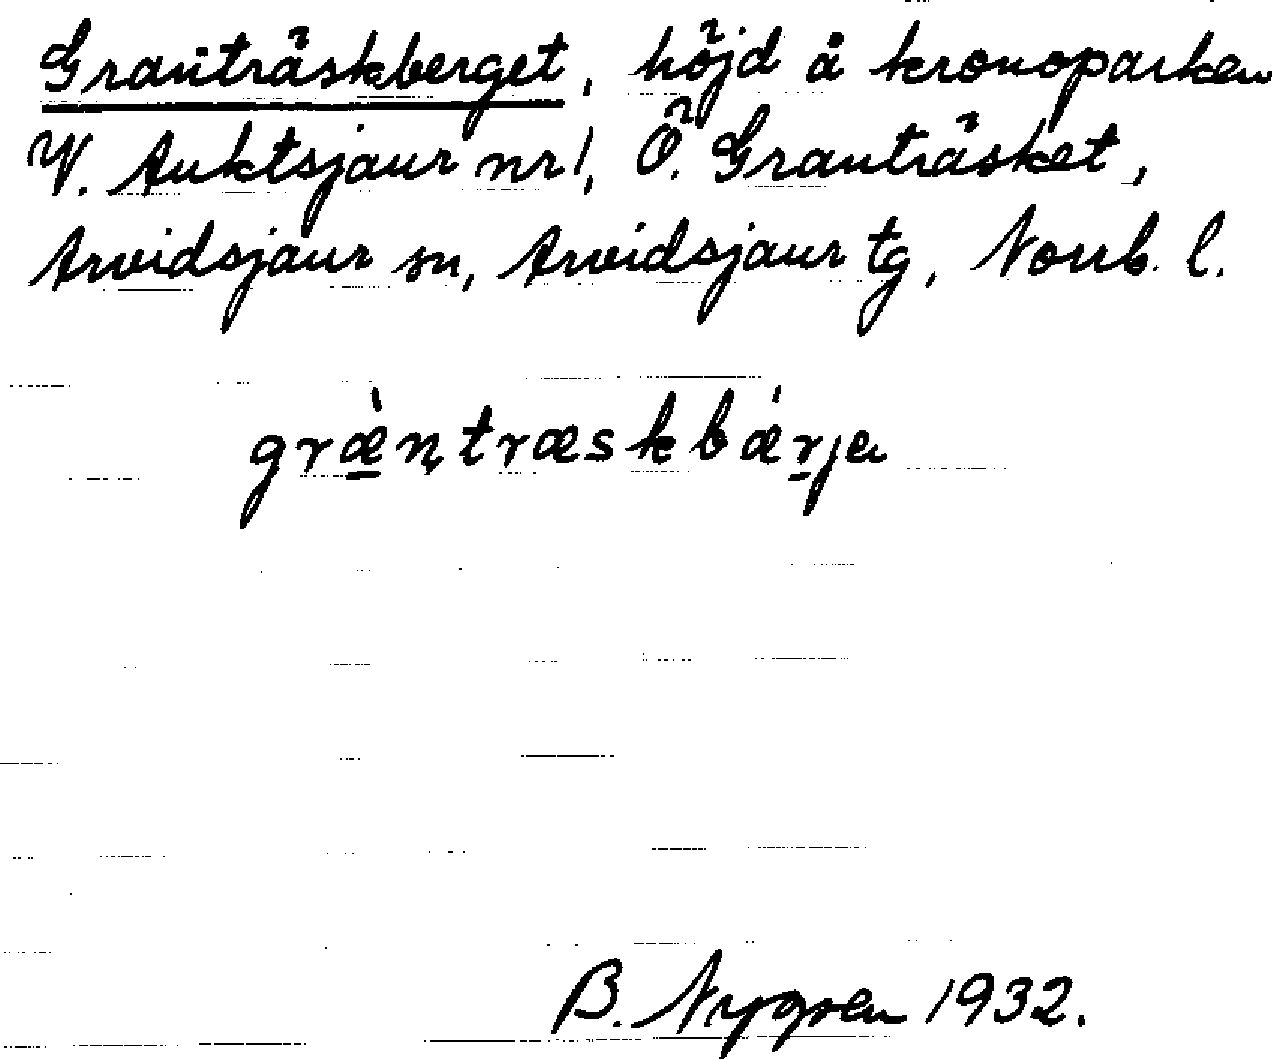 Granträskberget, höjd å kronoparken
V. Auktsjaur nr 1, Ö. Granträsket,
Arvidsjaur sn, Arvidsjaur tg, Norrb. l.
græ̀ntræskbǽrja
B. Nygren 1932.